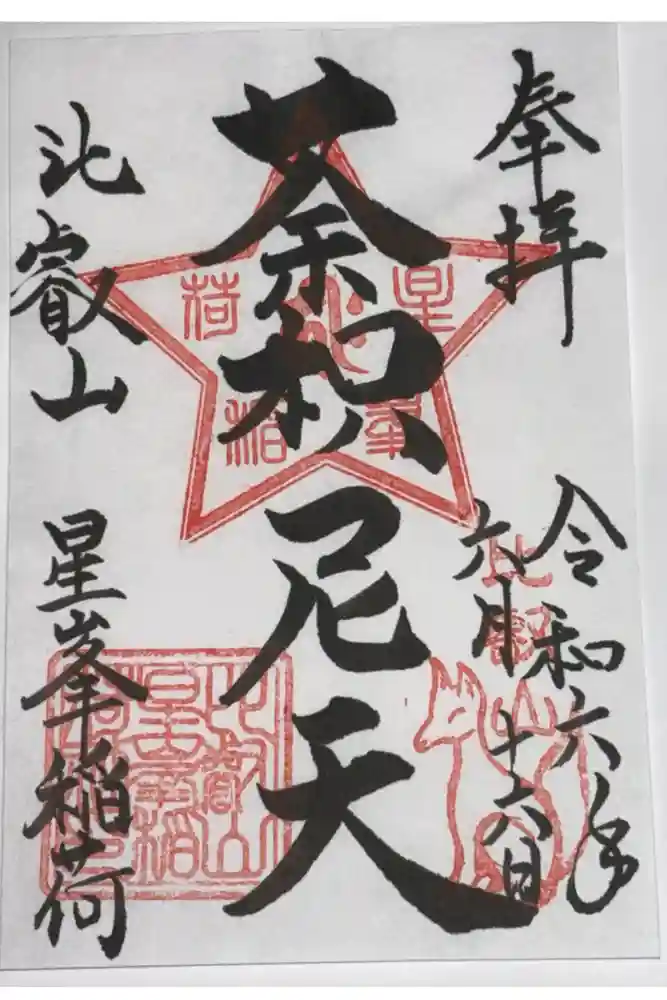 奉拝
令和六年
六月十六日
比叡山
荼枳尼天
星峯
稲荷
比叡山
星峯稲荷
比叡山
星峯稲